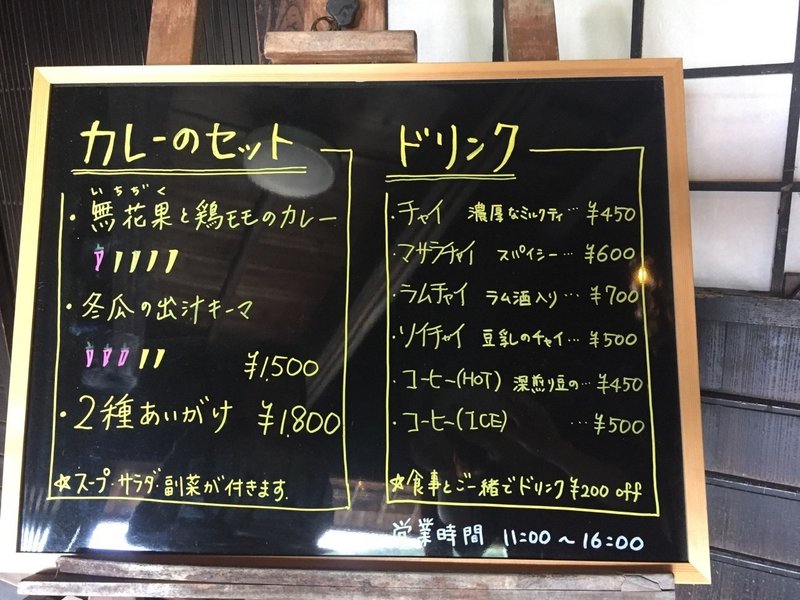 カレーのセット
いちぢく
・無花果と鶏モモのカレー
・冬瓜の出汁キーマ
¥1,500
・2種あいがけ ¥1,800
☆スープ・サラダ・副菜が付きます.
ドリンク
・チャイ 濃厚なミルクティ… ¥450
・マサラチャイ スパイシー… ¥600
・ラムチャイ ラム酒入り… ¥700
・ソイチャイ 豆乳のチャイ… ¥500
・コーヒー(HOT) 深煎り豆の… ¥450
・コーヒー(ICE) … ¥500
☆食事とご一緒でドリンク¥200 off
営業時間 11:00～16:00